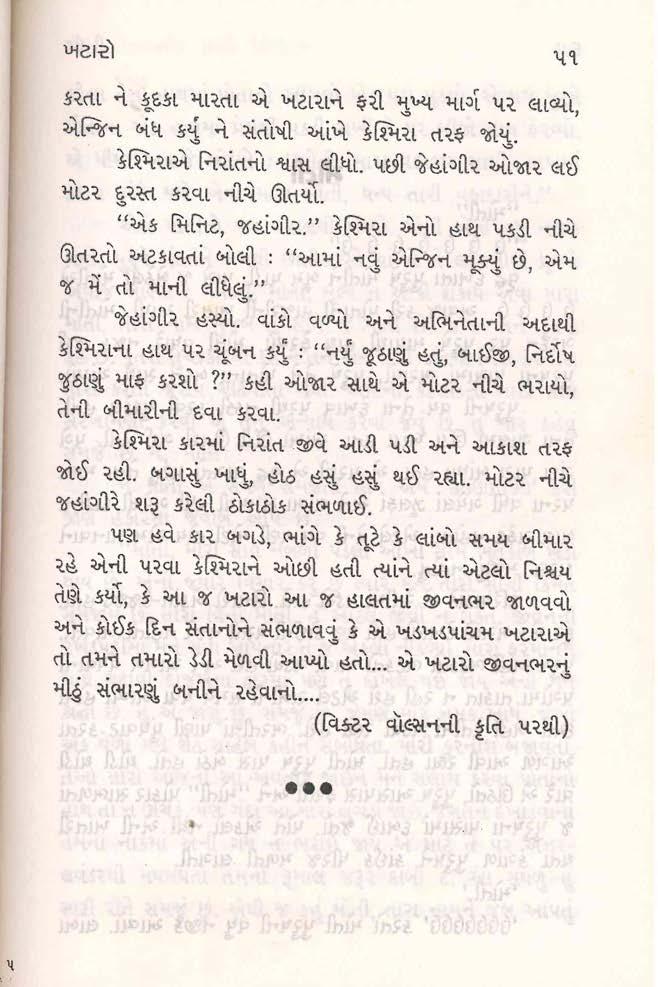 ખટારો ૫૧
કરતા ને કૂદકા મારતા એ ખટારાને ફરી મુખ્ય માર્ગ પર લાવ્યો,
એન્જિન બંધ કર્યું ને સંતોષી આંખે કેશ્મિરા તરફ જોયું.
કેશ્મિરાએ નિરાંતનો શ્વાસ લીધો. પછી જેહાંગીર ઓજાર લઈ
મોટર દુરસ્ત કરવા નીચે ઊતર્યો.
“એક મિનિટ, જહાંગીર.” કેશ્મિરા એનો હાથ પકડી નીચે
ઊતરતો અટકાવતાં બોલી : “આમાં નવું એન્જિન મૂક્યું છે, એમ
જ મેં તો માની લીધેલું.”
જેહાંગીર હસ્યો. વાંકો વળ્યો અને અભિનેતાની અદાથી
કેશ્મિરાના હાથ પર ચૂંબન કર્યું : “નર્યું જૂઠાણું હતું, બાઈજી, નિર્દોષ
જુઠાણું માફ કરશો ?” કહી ઓજાર સાથે એ મોટર નીચે ભરાયો,
તેની બીમારીની દવા કરવા.
કેશ્મિરા કારમાં નિરાંત જીવે આડી પડી અને આકાશ તરફ
જોઈ રહી. બગાસું ખાધું, હોઠ હસું હસું થઈ રહ્યા. મોટર નીચે
જહાંગીરે શરૂ કરેલી ઠોકાઠોક સંભળાઈ.
પણ હવે કાર બગડે, ભાંગે કે તૂટે કે લાંબો સમય બીમાર
રહે એની પરવા કેશ્મિરાને ઓછી હતી ત્યાંને ત્યાં એટલો નિશ્ચય
તેણે કર્યો, કે આ જ ખટારો આ જ હાલતમાં જીવનભર જાળવવો
અને કોઈક દિન સંતાનોને સંભળાવવું કે એ ખડખડપાંચમ ખટારાએ
તો તમને તમારો ડેડી મેળવી આપ્યો હતો... એ ખટારો જીવનભરનું
મીઠું સંભારણું બનીને રહેવાનો....
(વિક્ટર વૉલ્સનની કૃતિ પરથી)
●●●
૫